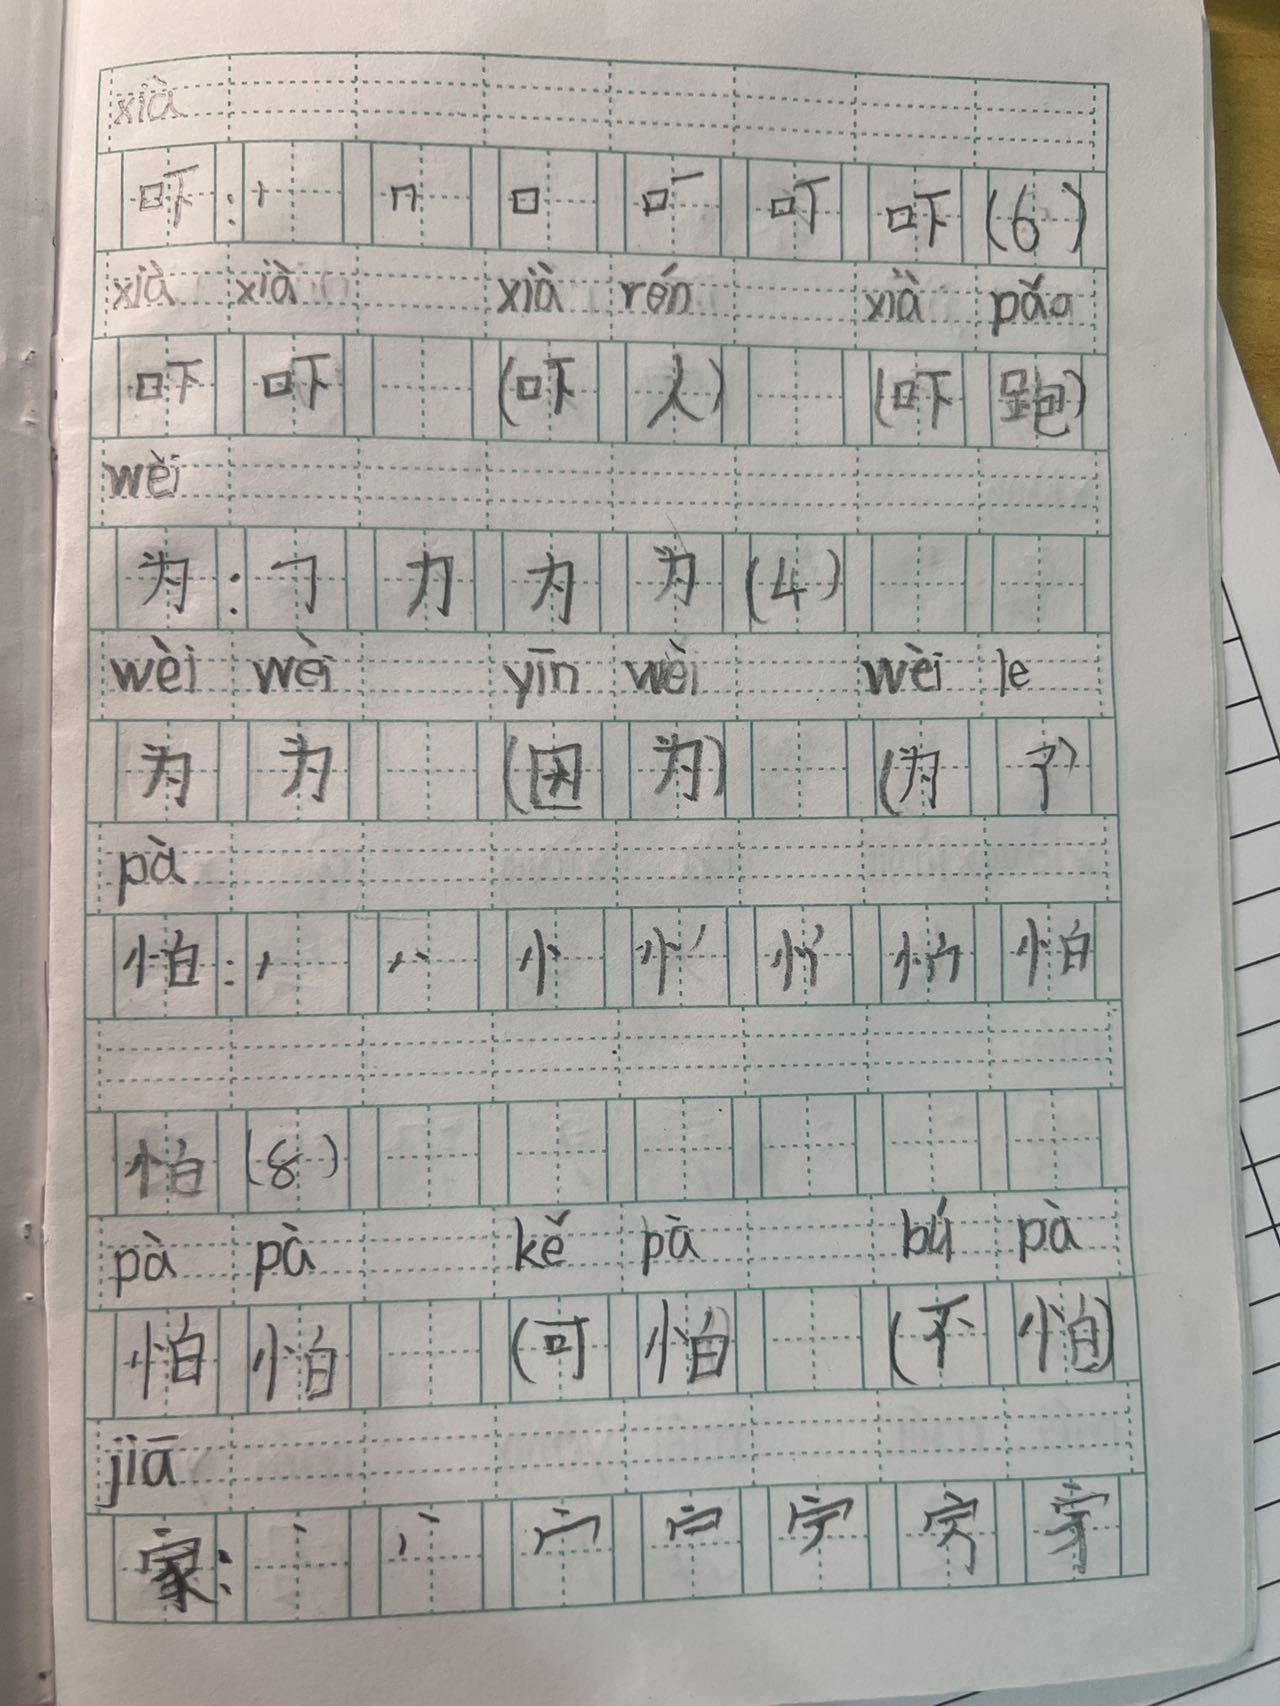 xià
吓：丨 冂 口 吖 吓 吓 (6)
xià xià xià rén xià pǎo
吓 吓 (吓 人) (吓 跑)
wèi
为：㇆ 力 为 为 (4)
wèi wèi yīn wèi wèi le
为 为 (因 为) (为 了)
pà
怕：丶 丷 忄 忄丿 怕
怕 (8)
pà pà kě pà bú pà
怕 怕 (可 怕) (不 怕)
jiā
家：丶 丶丶 宀